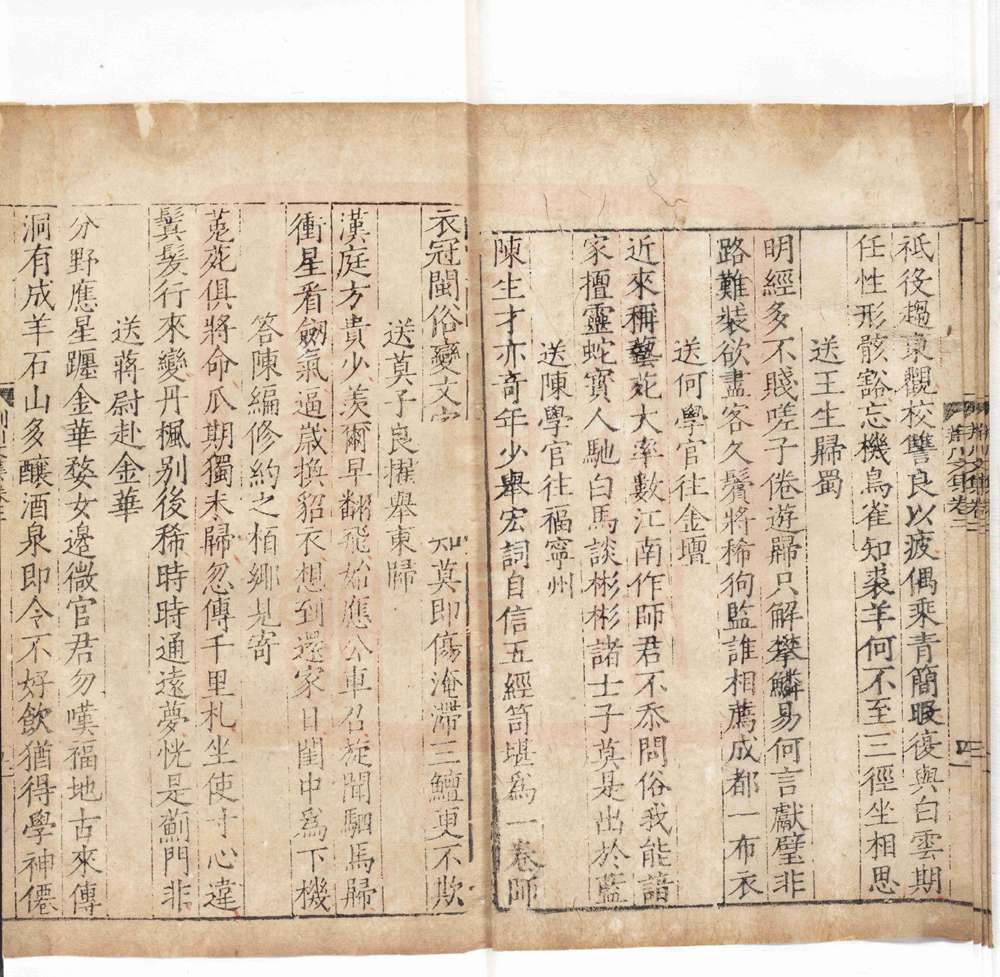 祇後趨東觀校讐良以疲偶乘青簡暇復與白雲期
任性形骸豁忘機鳥雀知裘羊何不至三徑坐相思
送王生歸蜀
明經多不賤嗟子倦遊歸只解攀鱗易何言獻璧非
路難裝欲盡客久鬢將稀狗監誰相薦成都一布衣
送何學官往金壇
近來稱藝苑大率數江南作師君不忝問俗我能諳
家擅靈蛇寶人馳白馬談彬彬諸士子莫是出於藍
送陳學官往福寧州
陳生才亦奇年少舉宏詞自信五經笥堪為一卷師
衣冠閩俗變文字 知莫即傷淹滯三鱣更不欺
送莫子良擢舉東歸
漢庭方貴少羨爾早翻飛始應公車召旋聞駟馬歸
衝星看劒氣逼歲換貂衣想到還家日閨中為下機
答陳編修約之栢鄉見寄
菟苑俱將命瓜期獨未歸忽傳千里札坐使寸心違
鬂髮行來變丹楓別後稀時時通遠夢恍是薊門非
送蔣尉赴金華
分野應星躔金華婺女邊微官君勿嘆福地古來傳
洞有成羊石山多釀酒泉即令不好飲猶得學神僊